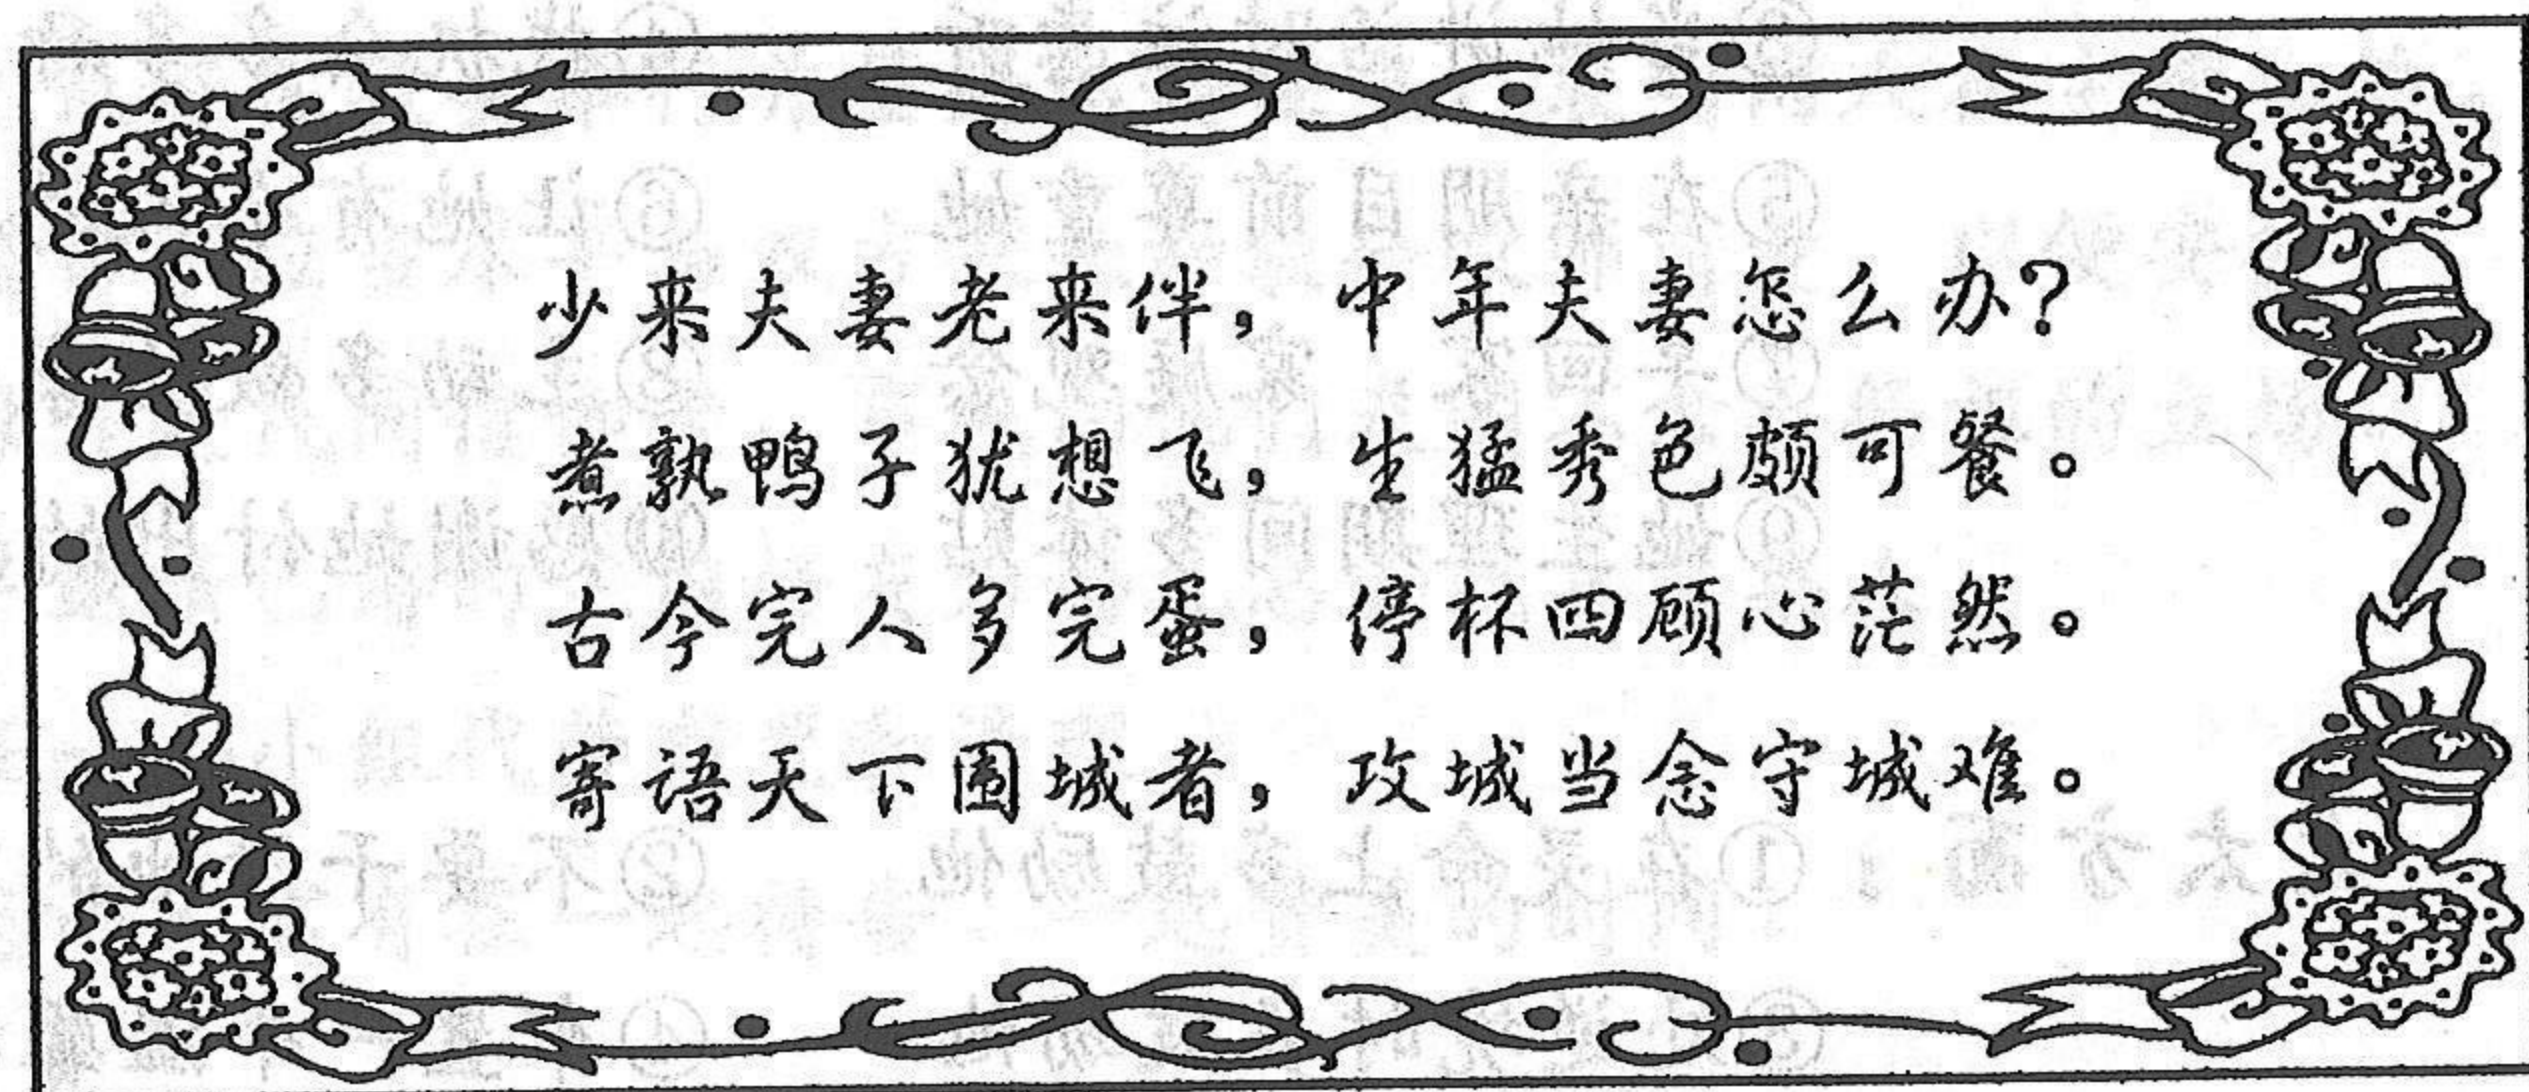 少来夫妻老来伴，中年夫妻怎么办？
煮熟鸭子犹想飞，生猛秀色颇可餐。
古今完人多完蛋，停杯四顾心茫然。
寄语天下围城者，攻城当念守城难。